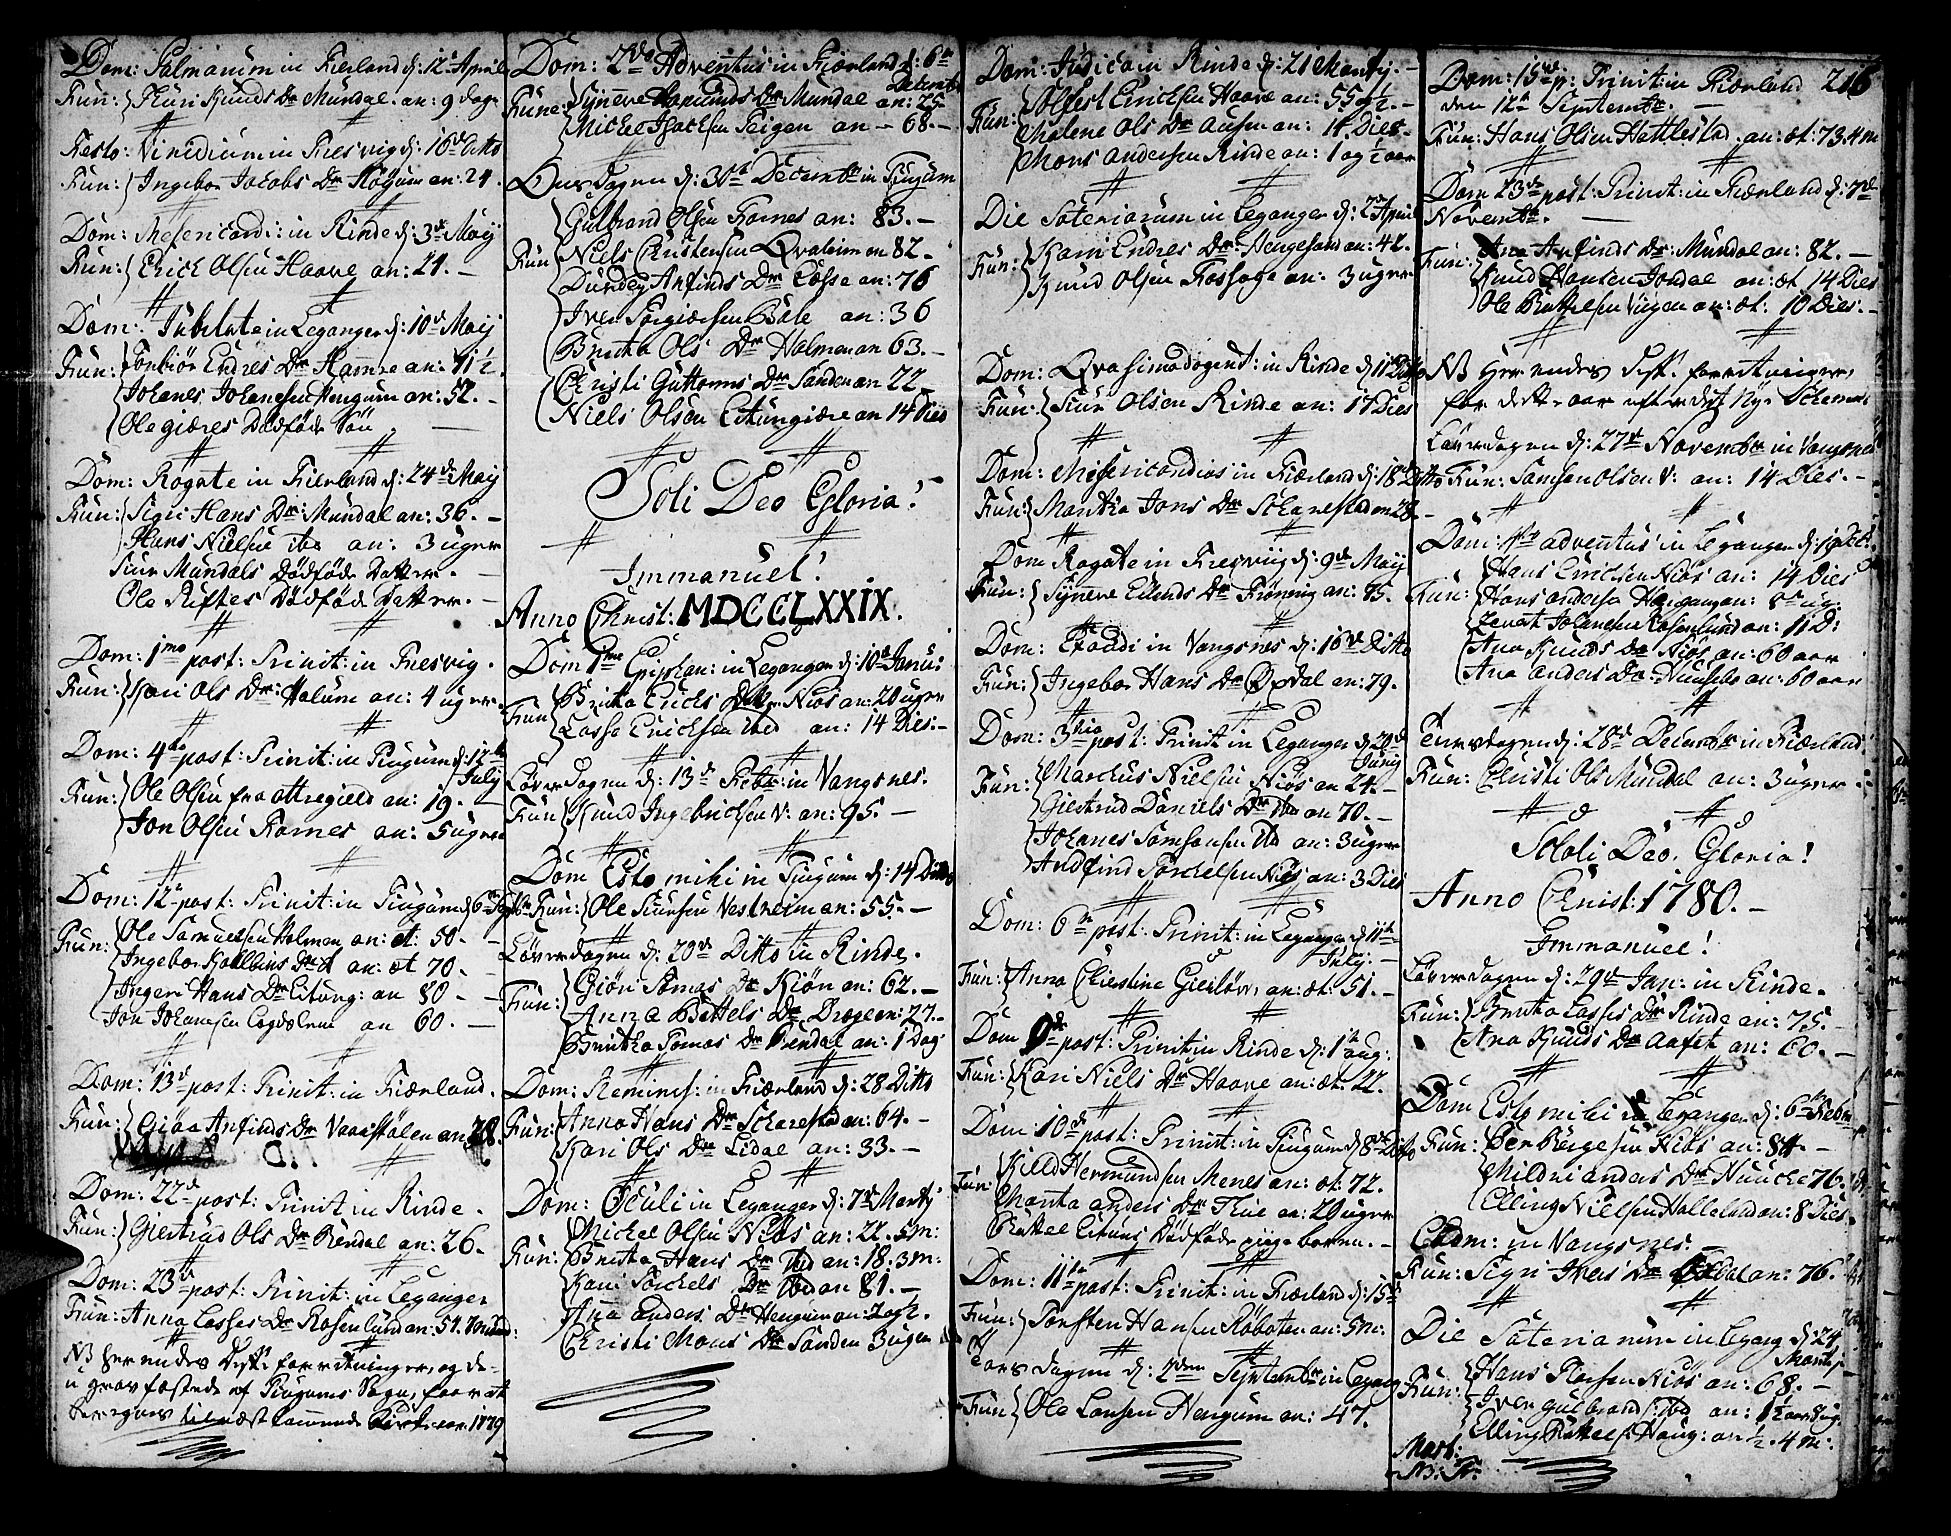 Dom: Palmarum in Fierland d: 12te April
Fun: Thuri Knuds Dr Mundal an: 9 dage
Festo: Viridium in Fresvig d: 16de ditto
Fun: Ingebor Jacobs Dr Nÿgum an: 24.
Dom: Mesericordi: in Rinde d: 3de Maij
Fun: Erick Olsen Haave an: 21. –
Dom: Jubilate in Leganger d: 10de Maij
Fun: Torbiør Endres Dr Hamre an: 71½.
Johanes Johansen Hengum an: 52. –
Ole giæres Dødføde Søn. –
Dom: Rogate in Fierland d: 24de Maij
Fun: Sigri Hans Dr Mundal an: 36. –
Hans Nielsen ibd an: 3 uger
Siur Mundals Dødføde Datter. –
Ole Riftes Dødføde Datter. –
Dom: 1mo post: Trinit: in Fresvig.
Fun: Kari Ols Dr Halum an: 4 uger.
Dom: 4to post: Trinit: in Tiugum d: 12te
July
Fun: Ole Olsen fra attregield an: 19. –
Jon Olsen Farnes an: 5 uger
Dom: 12te post: Trinit: in Tiugum d 6te Septbr
Fun: Ole Samuelsen Holmen an: æt: 50. –
Ingebor Kolbens Dr an: æt 70. –
Inger Hans Dr Eitung: an 80 –
Jon Johansen an 60. –
Dom: 13de post: Trinit: in Fierland.
Fun: Giøa Anfinds Dr an 28.
Dom: 22de post: Trinit in Rinde.
Fun: Giertrud Ols Dr Rendal an: 26.
Dom: 23de post: Trinit: in Leganger
Fun: Anna Lasses Dr Rosenlund an: 51.
NB her endes Dysse forretninger, og de-
u grav fæstede af Tiugums Sogn, for at
beregnes til næst kommende Kirke aar 1779
Dom: 2de Adventus in Fierland d: 6te
Decembr
Fune: Synneve Mundal an: 25
Michel Isachsen Teigen an – 68. –
Onsdagen d: 30te Decembr in Tiugum
Fun Gulbrand Olsen Farnes an: 83. –
Niels Christensen Qvaleim an 82. –
Durdey Anfinds Dr Cosse an: 76
Iver Torgiersen Bale an: 36
Britta Ols Dr Holmen an 63. –
Christi Guttorms Dr Sanden an 22. –
Niels Olsen Eitungiære an 14 Dies
Soli Deo Gloria!
Immanuel!
Anno Christ: MDCCLXXIX.
Dom 1me Epiphan: in Leganger d: 10de Janu:
Fun Britta Erichs Dtr Niøs an: 20 uger
Lasse Erichsen ibd an: 14 Dies: –
Løverdagen d: 13de Febr: in Vangsnes.
Fun Knud Ingebrichsen V: an: 95. –
Dom Esto mihi in Tiugum d: 14 Ditto
Fun: Ole Siursen Vestreim an: 55. –
Løverdagen d: 20de Ditto in Rinde.
Fun: Giøri Tomas Dr Kiøn an: 62. –
Anna Bottels Dr Drage an: 27. –
Britta Tomas Dr Rendal an: 1 Dag
Dom: Reminis: in Fierland d: 28 Ditto
Fun: Anna Hans Dr Scharestad an: 64. –
Kari Ols Dr Lidal an: 33. –
Dom: Oculi in Leganger d: 7de Martÿ
Fun: Michel Olsen Niøs an: 22. 5 m:
Britta Hans Dr ibd an: 18. 3 m:
Kari Torchels Dr ibd an 81. –
Ana anders Dr Hengum an: 2 og ½.
Christi Mons Dr Sanden 3 uger
Dom: Judica in Rinde d: 21 Martij. –
Fun: Solfest Erichsen Haave an: 55 og ½. –
Malene Ols Dr an: 14 Dies –
Mons andersen Rinde an: 1 og ½ aar
Die Soteriarum in Leganger d: 2de April
Fun: Karri Endres Dr Hengesand an: 42. –
Knud Olsen Fossage an: 3 uger
Dom: Qvasimodogent: in Rinde d: 11te Ditto
Fun: Siur Olsen Rinde an: 17 Dies
Dom: Mesericordias in Fierland d: 18de Ditto
Fun: Martha Jons Dr Scharestad an 28. –
Dom Rogate in Fresviig d: 9de Maij
Fun: Synneve Eilends Dr Frønnig an: 85.
Dom: Exaudi in Vangsnes d: 16de Ditto
Fun: Ingebor Hans Dr Øxdal an: 79.
Dom: 3tia post: Trinit in Leganger d 20de
Junÿ
Fun: Marchus Nielsen Niøs an 24. –
Giertrud Daniels Dr ibd an 70. –
Johanes Samsonsen ibd an: 3 uger
Andfind Torchelsen Niøs an: 3 Dies
Dom: 6te post: Trinit: in Leganger d 11te
July: –
Fun: Anna Christine Gieiløvs, an: æt: 51. –
Dom 9de post: Trinit in Rinde d: 1te aug:
Fun: Kari Niels Dr Haave an: æt: 22.
Dom: 10de post: Trinit: in Tiugum d 8de Ditto
Fun: Kield Hermundsen Menes an: æt: 72.
Marita anders Dr Thue an: 20 uger
Bottel Eituns Dødføde pige barn. –
Dom: 11te post: Trinit: in Fierland d: 15de
Fun: Torsten Hansen Røbøten an: 5 m:
Torsdagen d: 2den Septembr in Leganger
Fun: Ole Larsen Hengum an: 47.
216
Dom: 15de p: Trinit: in Fierland
den 12te Septembr. –
Fun: Hans Olsen Hattlestad an: æt: 73. 4 m
Dom 23de post: Trinit: in Fierland d: 7de
Novembr. –
Fun: Ana Anfinds Dr Mundal an: 82. –
Knud Hansen Jordal an: æt 14 Dies
Ole Bottelsen Vigen an: æt. 10 Dies: –
NB Her endes Dysse forretninger,
for dette aar efter det Nÿe Schema
Løverdagen d: 27de Novembr in Vangsnes
Fun: Samson Olsen V: an: 14 Dies. –
Dom: 4te adventus in Leganger d: 19 Dec:
Fun: Hans Erichsen Niøs an: 14 Dies
Hans andersen Hengum an: 8te ug:
Johansen Rosenlund an: 11 D:
Ana Knuds Dr Niøs an: 60 aar
Ana anders Dr an: 60 aar
Tiersdagen d: 28de Decembr in Fierland
Fun: Christi Ols Mundal an: 3 uger
Sololi Deo. Gloria!
Anno Christ: 1780. –
Immanuel!
Løverdagen d: 29de Jan: in Rinde.
Fun: Britta Lasses Dr Rinde an: 75. –
Ana Knuds Dr Aafet an: 60. –
Dom Esto mihi in Leganger d: 6te Febr
Fun: Per Børgesen Niøs an: 84. –
Mildri anders Dr Huuche 76. –
Elling Nielsen Halleland an: 8 Dies.
Eodem: in Vangsnes. –
Fun: Sigri Ivers Dr an: 76.
Die Soteriarum in Legang d: 24
Martij –
Fun: Hans Niøs an: 68. –
Iver gulbrands: ibd an: 1½ aar 8 ug.
Elling Bottels: Haug: an ½. 4 m:
Mart:
NB: